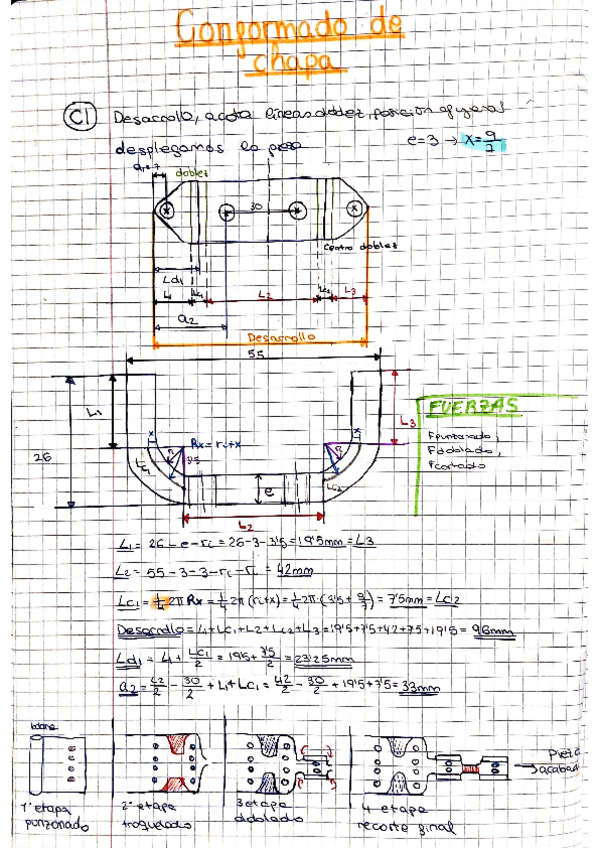 Conformado de
chapa
C1 Desarrollo, acota líneas doblez, posición agujeros
desplegamos la pieza e=3 → x=9/7
doblez
30
centro doblez
Ld1
L1 Lc1 L2 Lc2 L3
a2
Desarrollo
55
L1
26
x
Rx=ri+x
ri
3'5
Lc1
e
L2
x
ri
Lc2
L3
FUERZAS
Fpunzonado,
Fdoblado,
Fcortado
L1= 26-e-ri=26-3-3'5=19'5mm=L3
L2= 55-3-3-ri-ri = 42mm
Lc1= 1/4 2π Rx = 1/4 2π (ri+x)= 1/4 2π·(3'5+9/7)= 7'5mm=Lc2
Desarrollo= L1+Lc1+L2+Lc2+L3=19'5+7'5+42+7'5+19'5= 96mm
Ld1 = L1+ Lc1/2 = 19'5+ 7'5/2 = 23'25mm
a2= L2/2 - 30/2 + L1+Lc1= 42/2 - 30/2 + 19'5+7'5= 33mm
1ª etapa
punzonado
2ª etapa
troquelado
3 etapa
doblado
4 etapa
recorte final
→ pieza
acabada